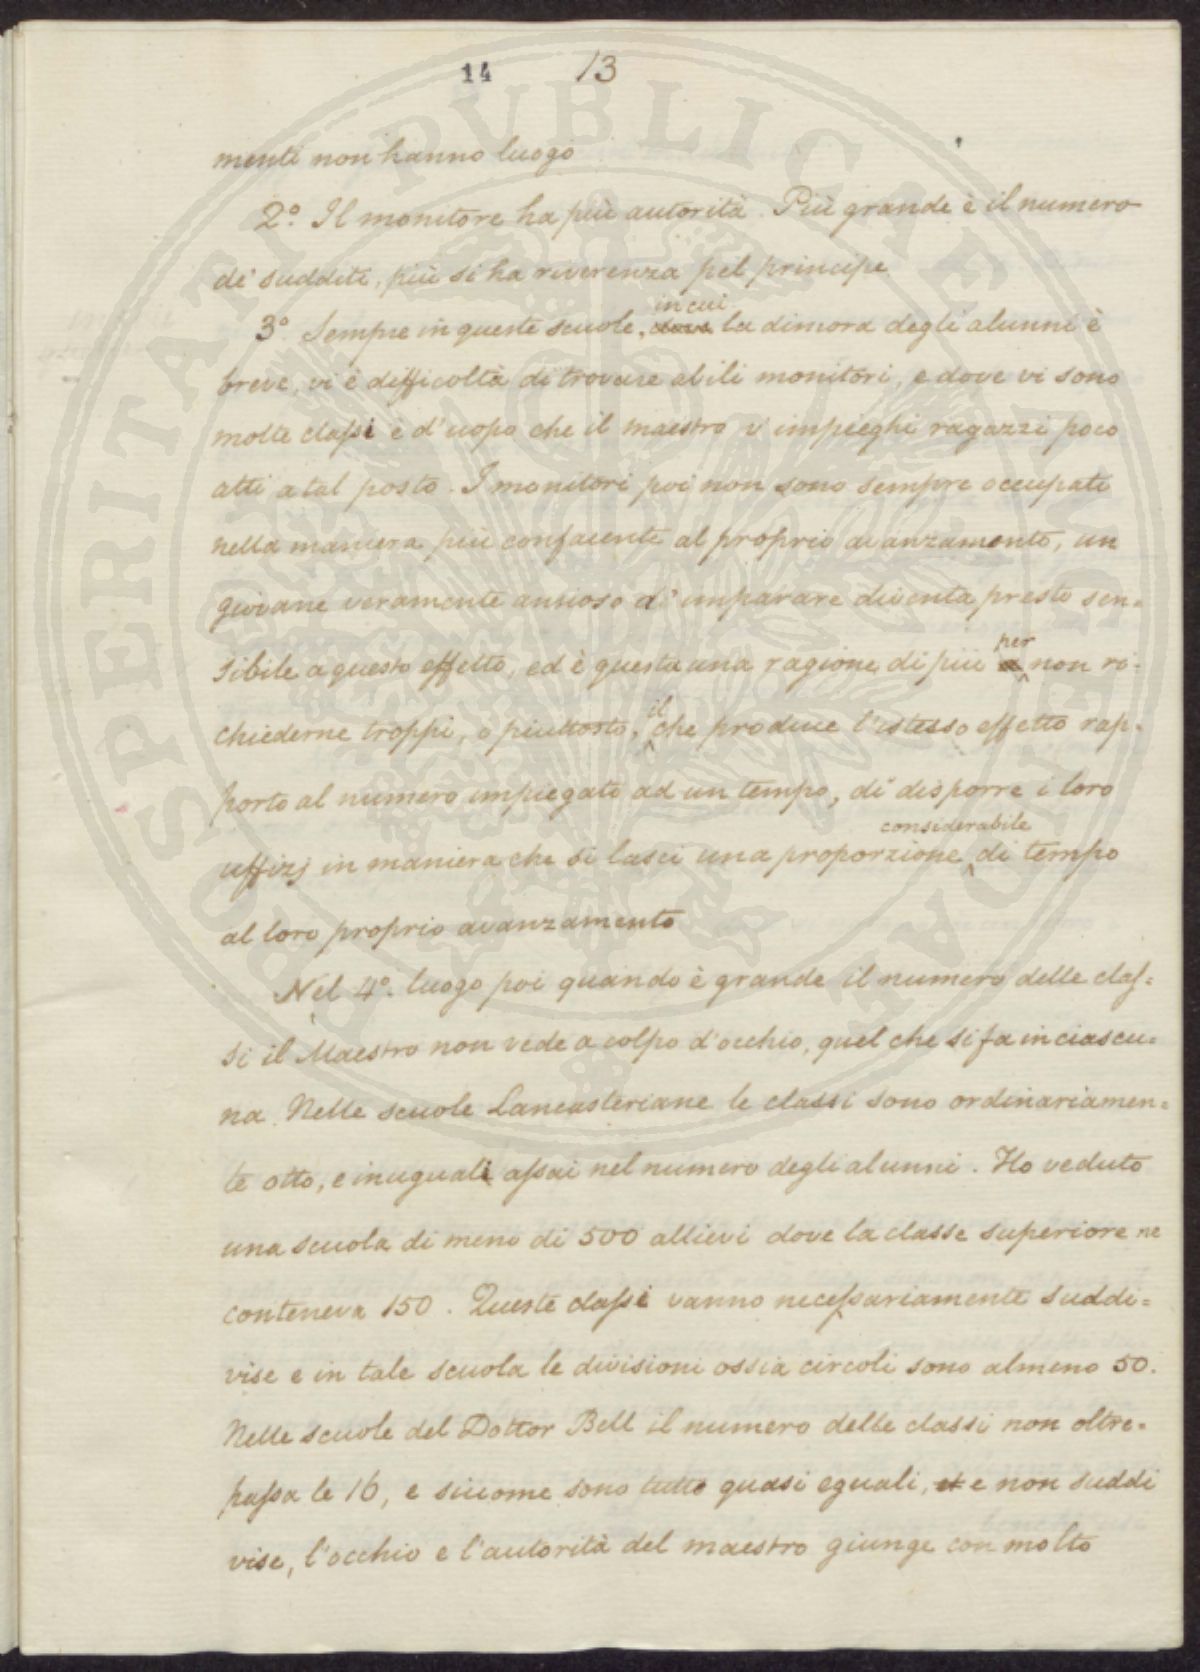 14 13
menti non hanno luogo
2º. Il monitore ha più autorità. Più grande è il numero
de' sudditi, più si ha riverenza pel principe
in cui
3º. Sempre in queste scuole, dove la dimora degli alunni è
breve, vi è difficoltà di trovare abili monitori, e dove vi sono
molte classi è d'uopo che il maestro v'impieghi ragazzi poco
atti a tal posto. I monitori poi non sono sempre occupati
nella maniera più confacente al proprio avanzamento, un
giovane veramente ansioso d'imparare diventa presto sen=
sibile a questo effetto, ed è questa una ragione di più per non ri=
chiederne troppi, o piuttosto, il che produce l'istesso effetto rap=
porto al numero impiegato ad un tempo, di disporre i loro
considerabile
uffizj in maniera che si lasci una proporzione di tempo
al loro proprio avanzamento
Nel 4º. luogo poi quando è grande il numero delle clas=
si il Maestro non vede a colpo d'occhio, quel che si fa in ciascu=
na. Nelle scuole Lancasteriane le classi sono ordinariamen=
te otto, e inuguali assai nel numero degli alunni. Ho veduto
una scuola di meno di 500 allievi dove la classe superiore ne
conteneva 150. Queste classi vanno necessariamente suddi=
vise e in tale scuola le divisioni ossia circoli sono almeno 50.
Nelle scuole del Dottor Bell il numero delle classi non oltre=
passa le 16, e siccome sono tutte quasi eguali, et e non suddi
vise, l'occhio e l'autorità del maestro giunge con molto
PROSPERITATI PUBLICAE AUGENDAE